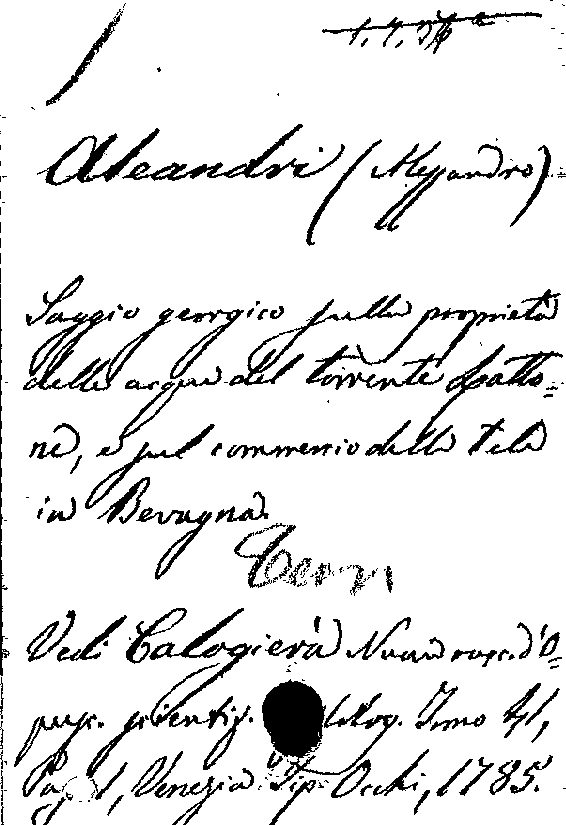 Aleandri (Alessandro)
Saggio georgico sulla proprietà
delle acque del torrente Attone
ne, e sul commercio delle tele
in Bevagna.
Vedi Calogierà Nuova racc. d'O=
pusc. scientif. filolog. Tomo 41,
Pag. 1, Venezia Tip. Occhi, 1785.